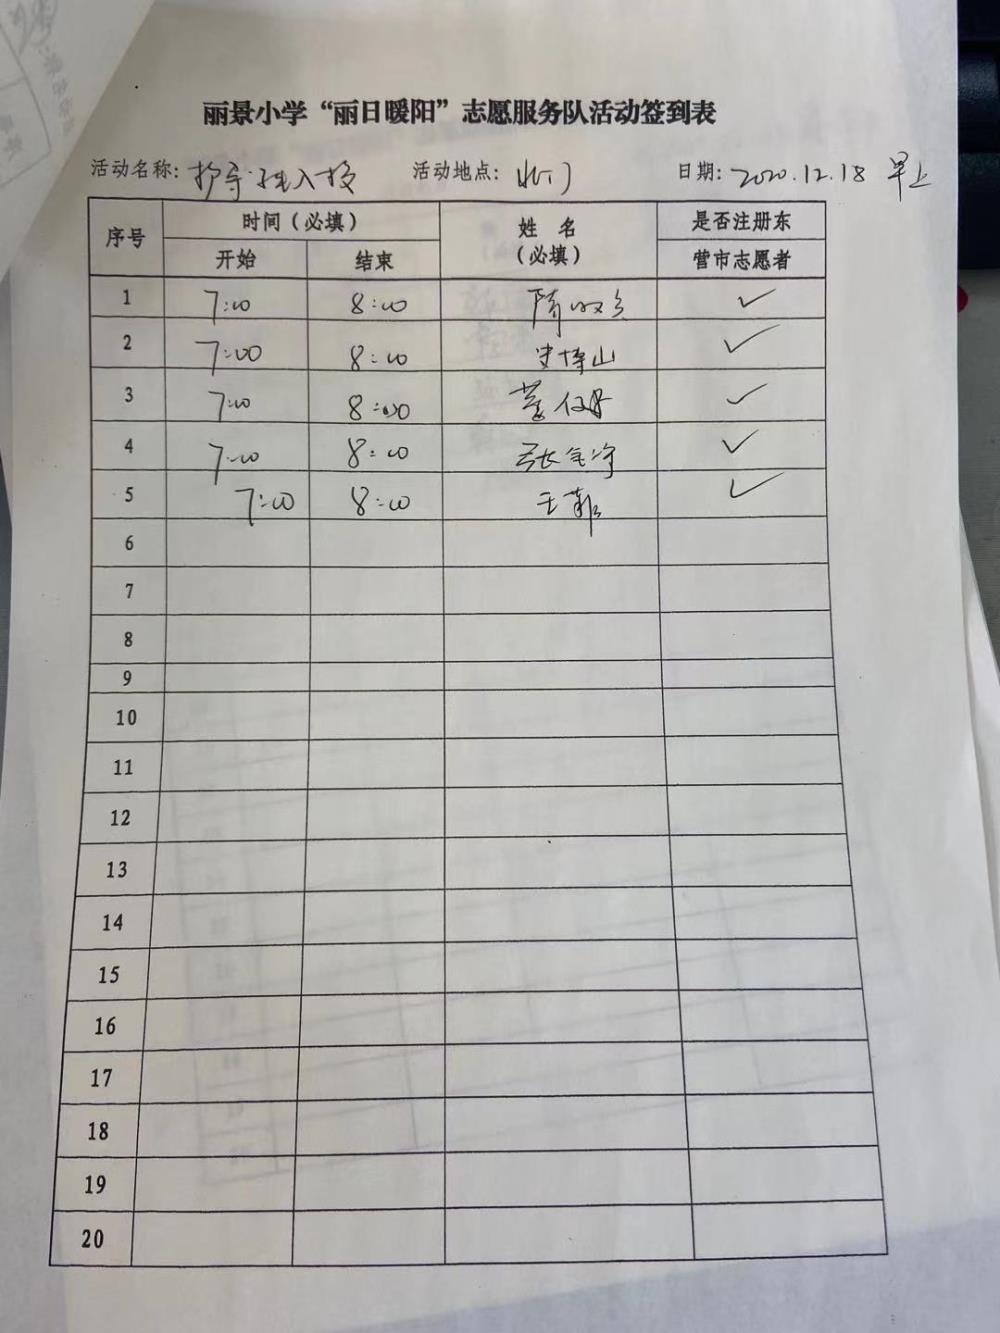 丽景小学“丽日暖阳”志愿服务队活动签到表
活动名称: 护导 入校 活动地点: 北门 日期: 2020.12.18 早上
序号 时间（必填） 姓 名 （必填） 是否注册东营市志愿者
开始 结束
1 7:00 8:00 隋 ✓
2 7:00 8:00 史博山 ✓
3 7:00 8:00 ✓
4 7:00 8:00 张 ✓
5 7:00 8:00 王菲 ✓
6
7
8
9
10
11
12
13
14
15
16
17
18
19
20